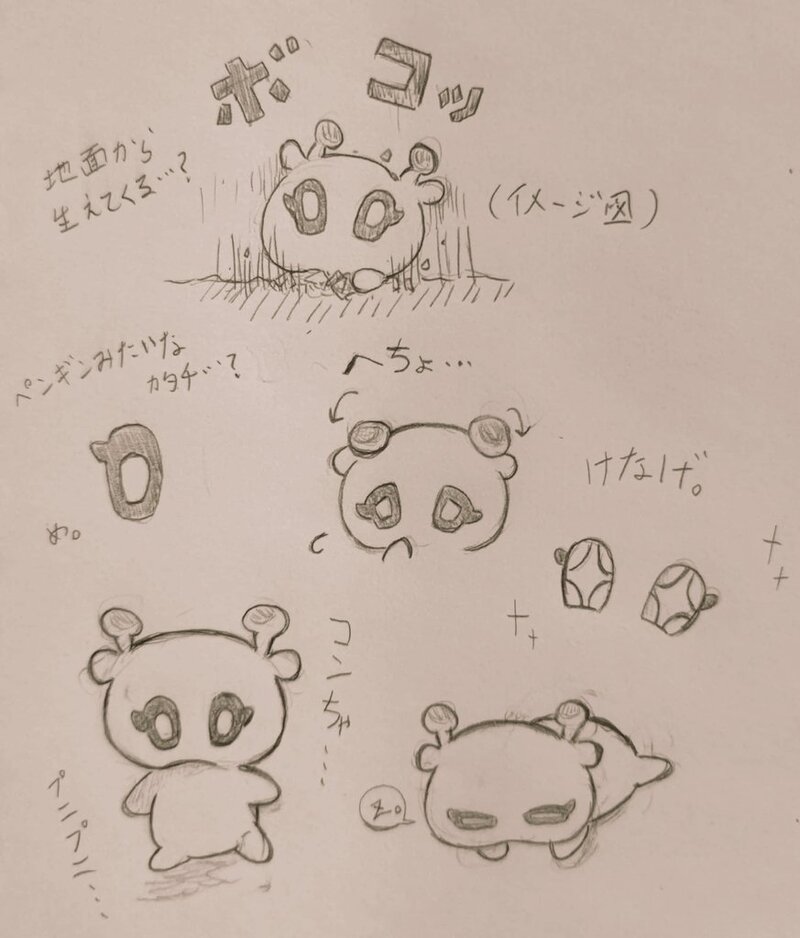 ボコッ
地面から
生えてくる…？
（イメージ図）
ペンギンみたいな
カタチ…？
へちょ…
け な げ。
め。
コンちゃ…
プニプニ…
z。